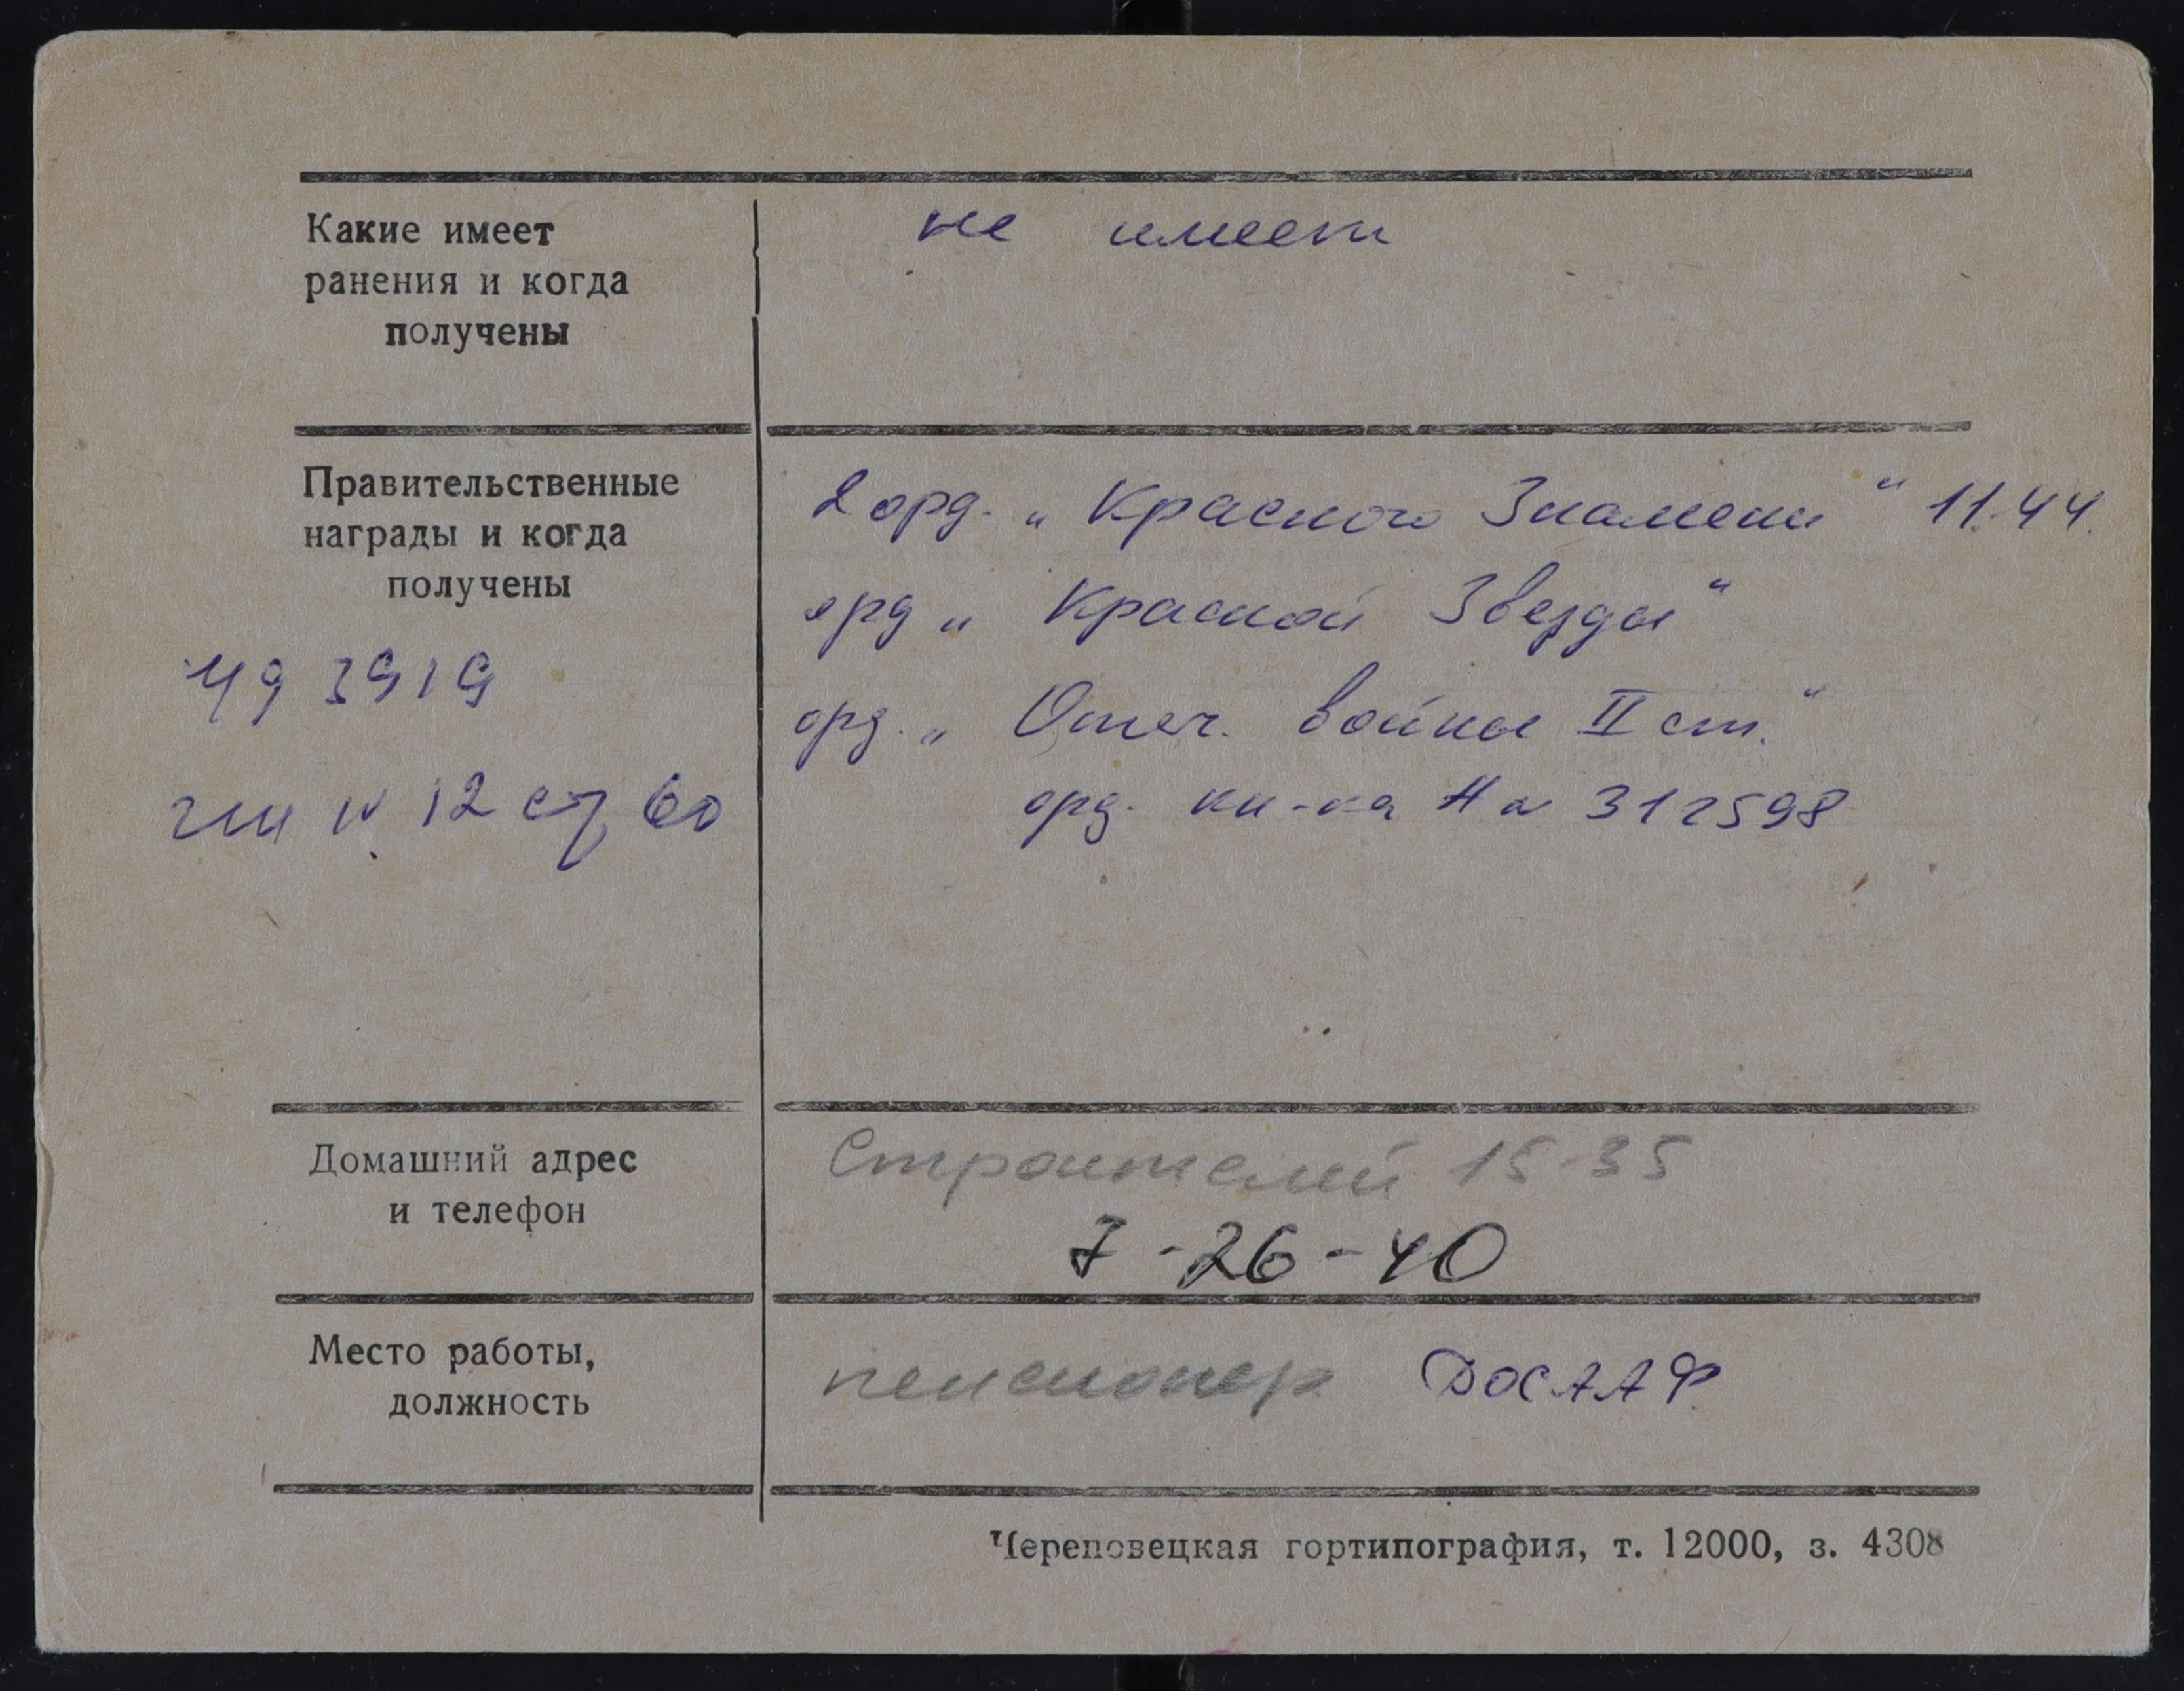 Какие имеет
ранения и когда
получены
не имеет
Правительственные
награды и когда
получены
2 орд. „Красного Знамени“ 11.44.
орд „Красной Звезды“
орд. „Отеч. войны II ст.“
орд. кн-ка А № 312598
уд 3919
12 ст 60
Домашний адрес
и телефон
Строителей 15-35
7-26-40
Место работы,
должность
пенсионер ДОСААФ
Череповецкая гортипография, т. 12000, з. 4308